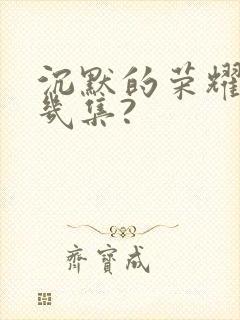 沉默的荣耀
幾集?
齊寶成